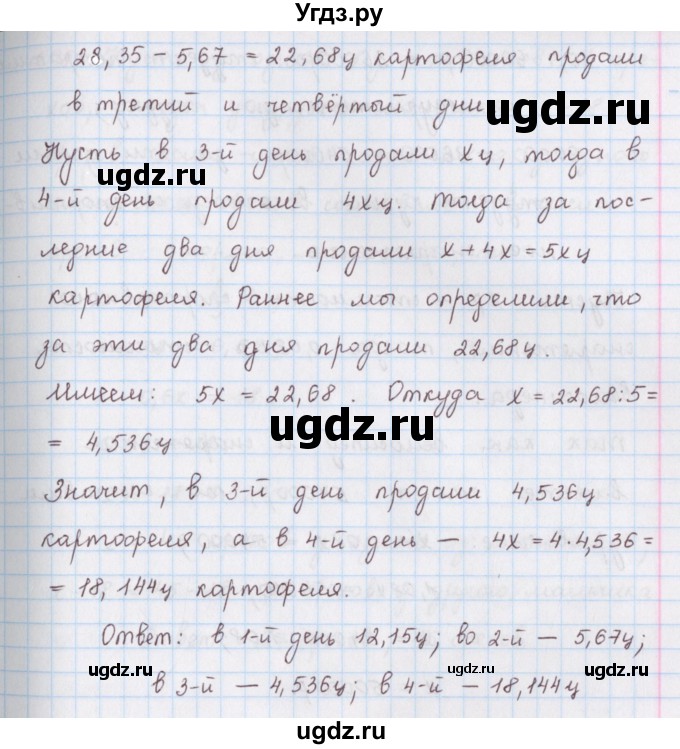 Угдз.ру
28,35 - 5,67 = 22,68ц картофеля продали
в третий и четвёртый дни
Пусть в 3-й день продали xц, тогда в
ugdz.ru ugdz.ru
4-й день продали 4xц. Тогда за пос-
ледние два дня продали x+4x=5xц
картофеля. Раннее мы определили, что
за эти два дня продали 22,68ц.
Имеем: 5x = 22,68. Откуда x = 22,68:5=
ugdz.ru
= 4,536ц
Значит, в 3-й день продали 4,536ц
картофеля, а в 4-й день — 4x=4·4,536=
ugdz.ru ugdz.ru
= 18,144ц картофеля.
Ответ: в 1-й день 12,15ц; во 2-й — 5,67ц;
ugdz.ru ugdz.ru ugdz.ru
в 3-й — 4,536ц; в 4-й — 18,144ц
ugdz.ru